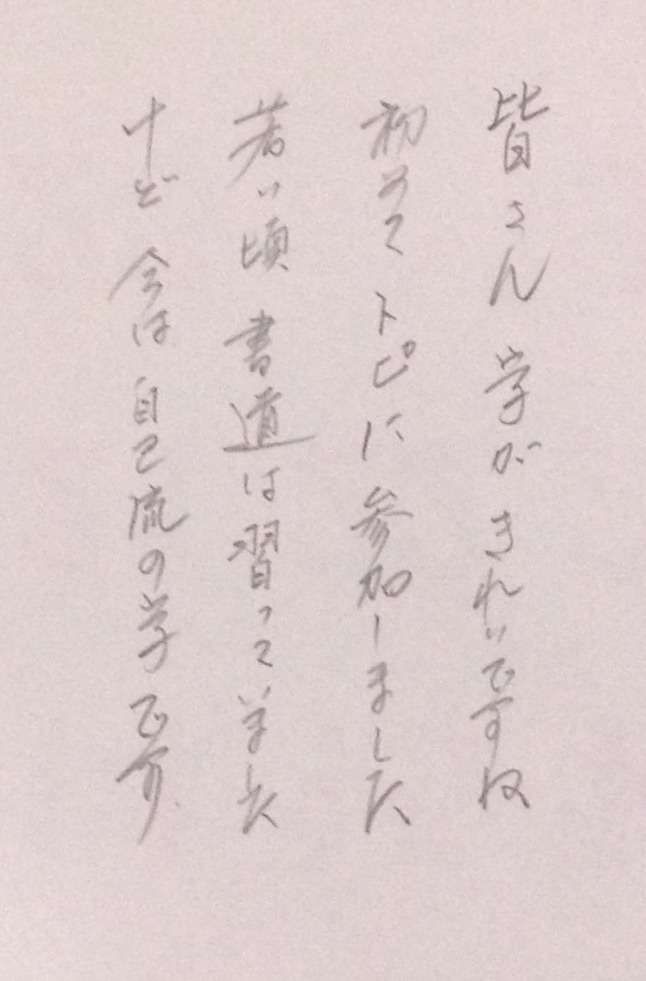 皆さん 字がきれいですね
初めてトピに参加しました
若い頃 書道は習っていました
けど 今は自己流の字です